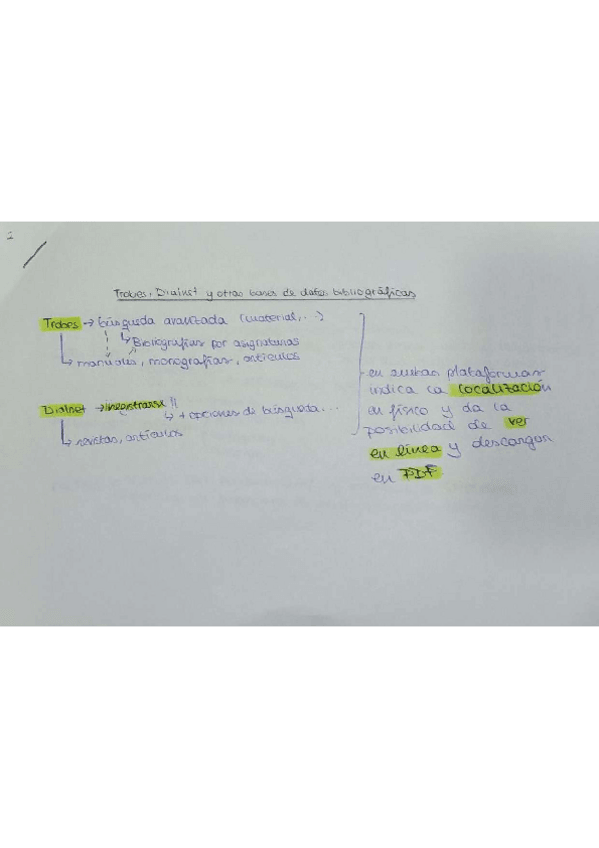 Trobes, Dialnet y otras bases de datos bibliográficas
Trobes → búsqueda avanzada (material, ...)
↳ Bibliografías por asignaturas
↳ manuales, monografías, artículos
Dialnet → !!
↳ + opciones de búsqueda...
↳ revistas, artículos
en ambas plataformas
indica la localización
en físico y da la
posibilidad de ver
en línea y descargar
en PDF